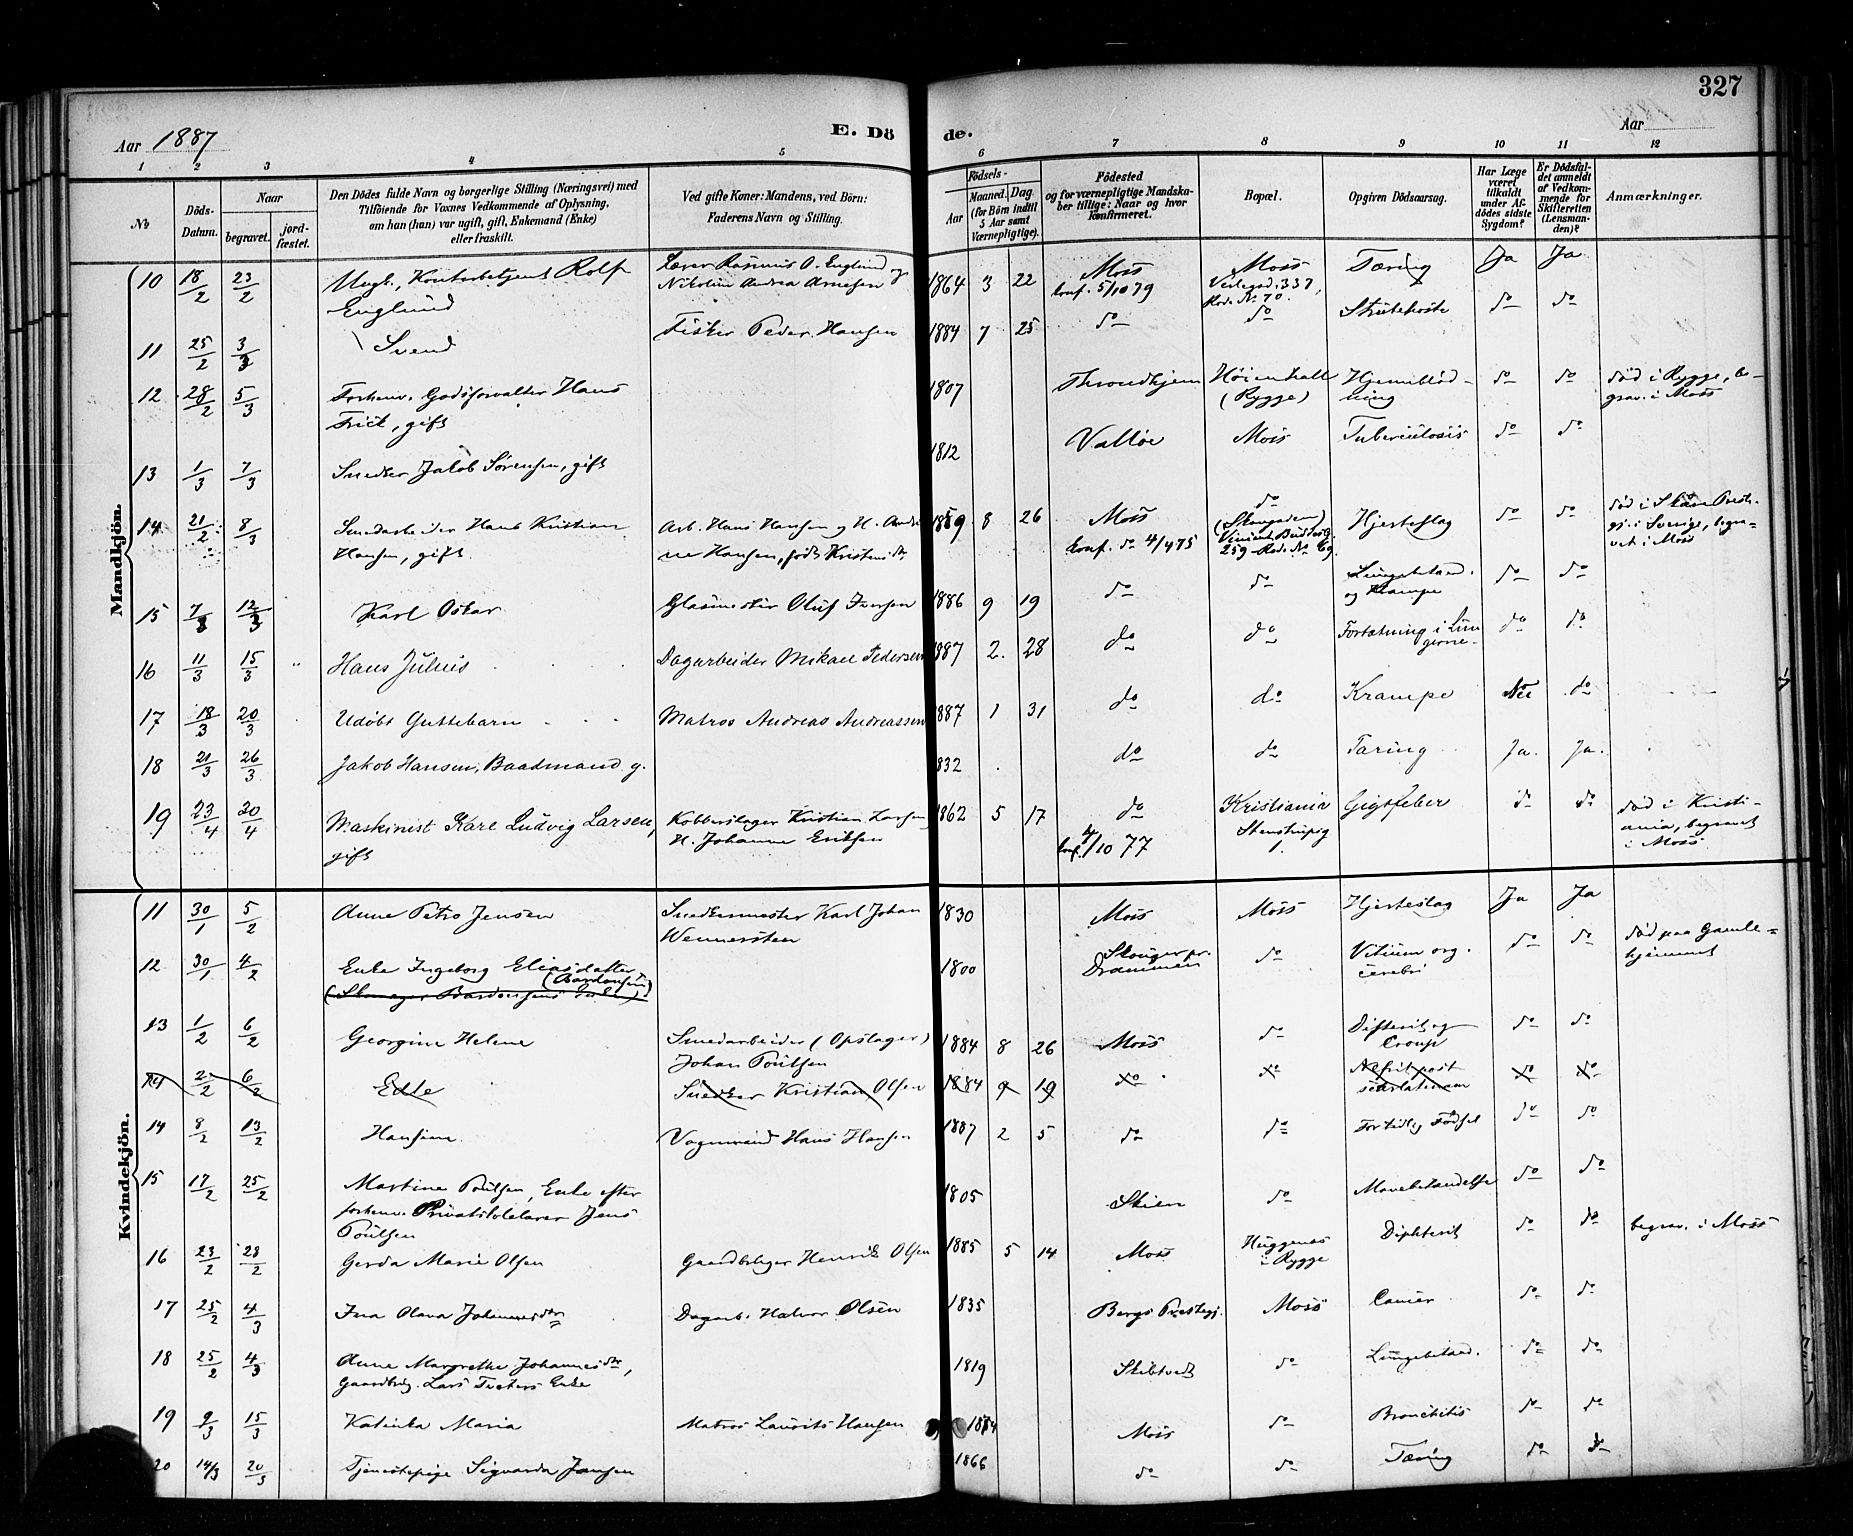 327
Aar 1887
E. Dö de.
Aar
1 2 3 4 5 6 7 8 9 10 11 12
No
Döds-Datum.
Naar
begravet.
jord-fæstet.
Den Dödes fulde Navn og borgerlige Stilling (Næringsvei) med
Tilföiende for Voxnes Vedkommende af Oplysning,
om han (hun) var ugift, gift, Enkemand (Enke)
eller fraskilt.
Ved gifte Koner: Mandens, ved Börn:
Faderens Navn og Stilling.
Födsels-
Aar
Maaned. Dag.
(for Börn indtil
5 Aar samt
Værnepligtige).
Födested
og for værnepligtige Mandska-
ber tillige: Naar og hvor
konfirmeret.
Bopæl.
Opgiven Dödsaarsag.
Har Læge
været
tilkaldt
under Af-
dödes sidste
Sygdom?
Er Dödsfal-
det anmeldt
af Vedkom-
mende for
Skifteretten
(Lensman-
den)?
Anmærkninger.
Mandkjön.
10 18/2 23/2 Ungk., Kontorbetjent Rolf Englund Lærer Rasmus O. Englund og Nikoline Andrea Arnesen 1864 3 22 Moss konf. 5/10 79 Moss 337, Rod. No 70. Tæring Ja Ja
11 25/2 3/3 Svend Fisker Peder Hansen 1884 7 25 do do Strubehoste do do
12 28/2 5/3 Forhenv. Godsforvalter Hans Frick, gift 1807 Throndhjem Høienhald (Rygge) Hjerneblød-ning do do død i Rygge, be-grav. i Moss
13 1/3 7/3 Snedker Jakob Sørensen, gift 1812 Valløe Moss Tuberculosis do do
14 21/2 8/3 Smedarbeider Hans Kristian Hansen, gift Arb. Hans Hansen og H. Andrine Hansen, født Kristensdtr 1859 8 26 Moss konf. do 4/4 75 do 259 Rod. No 69 Hjerteslag do do død i Sverige, begra-vet i Moss
15 7/3 12/3 Karl Oskar Glasmester Oluf Iversen 1886 9 19 do do Lungebetænd. og Krampe do do
16 11/3 15/3 Hans Julius Dagarbeider Mikael Pedersen 1887 2 28 do do Fortætning i Lungerne do do
17 18/3 20/3 Udøbt Guttebarn Matros Andreas Andreassen 1887 1 31 do do Krampe Nei do
18 21/3 26/3 Jakob Hansen, Baadmand g. 1832 do do Tæring Ja. Ja.
19 23/4 30/4 Maskinist Karl Ludvig Larsen, gift Kobberslager Kristian Larsen, H. Johanne Eriksen 1862 5 17 do konf. /10 77 Kristiania 1. Gigtfeber do do død i Kristi-ania, begravet i Moss
Kvindekjön.
11 30/1 5/2 Anne Petro Jensen Snedkermester Karl Johan Wennersteen 1830 Moss Moss Hjerteslag Ja Ja
12 30/1 4/2 Enke Ingeborg Eliasdatter (Bardonsen) 1800 Skouger pr. Drammen do Vitium org. cerebri do do død paa Gamle-hjemmet
13 1/2 6/2 Georgine Helene Smedarbeider (Opslager) Johan Poulsen 1884 8 26 Moss do Difterit og Croup do do
14 2/2 6/2 Edle Snedker Kristian Olsen 1884 9 19 do do Nefrit post scarlatinam do do
14 8/2 13/2 Hansine Vognmand Hans Hansen 1887 2 5 do do For tidlig Fødsel do do
15 17/2 25/2 Martine Poulsen, Enke efter forhenv. Privatskolelærer Jens Poulsen 1805 Skien do Mavebetændelse do do
16 23/2 28/2 Gerda Marie Olsen Gaardbruger Henrik Olsen 1885 5 14 Moss Huggenes i Rygge Diphterit do do begrav. i Moss
17 25/2 4/3 Ina Olava Johannesdtr Dagarb. Halvor Olsen 1835 Bergs Præstegj. Moss Cancer do do
18 25/2 4/3 Anne Margrethe Johannesdtr, Gaardbrug. Lars Enke 1819 Skibtvedt do Lungebetænd. do do
19 9/3 15/3 Katinka Maria Matros Laurits Hansen 1884 Moss do Bronchitis do do
20 14/3 20/3 Tjenestepige Sigvarda Jansen 1866 do do Tæring do do